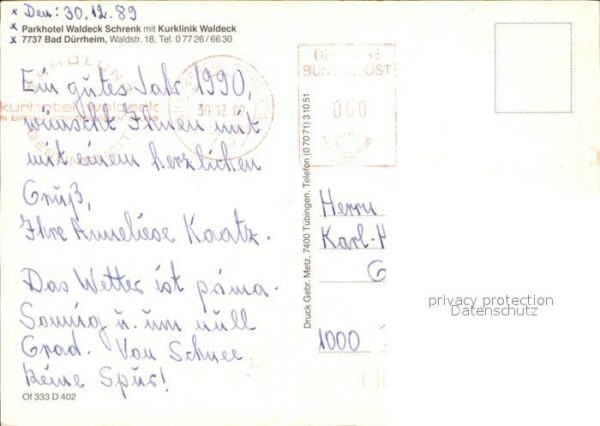 x Den: 30.12.89
x Parkhotel Waldeck Schrenk mit Kurklinik Waldeck
x 7737 Bad Dürrheim, Waldstr. 18, Tel. 0 77 26 / 66 30
ERHOLUNG
kurhotel waldeck
30.12.89
DEUTSCHE
BUNDESPOST
000
Ein gutes Jahr 1990,
wünscht Ihnen mit
mit einem herzlichen
Gruß,
Ihre Anneliese Kaatz.
Das Wetter ist prima.
Sonnig u. um null
Grad. Von Schnee
keine Spur!
Of 333 D 402
Druck Gebr. Metz, 7400 Tübingen, Telefon (0 70 71) 3 10 51
Herrn
Karl-
1000
privacy protection
Datenschutz